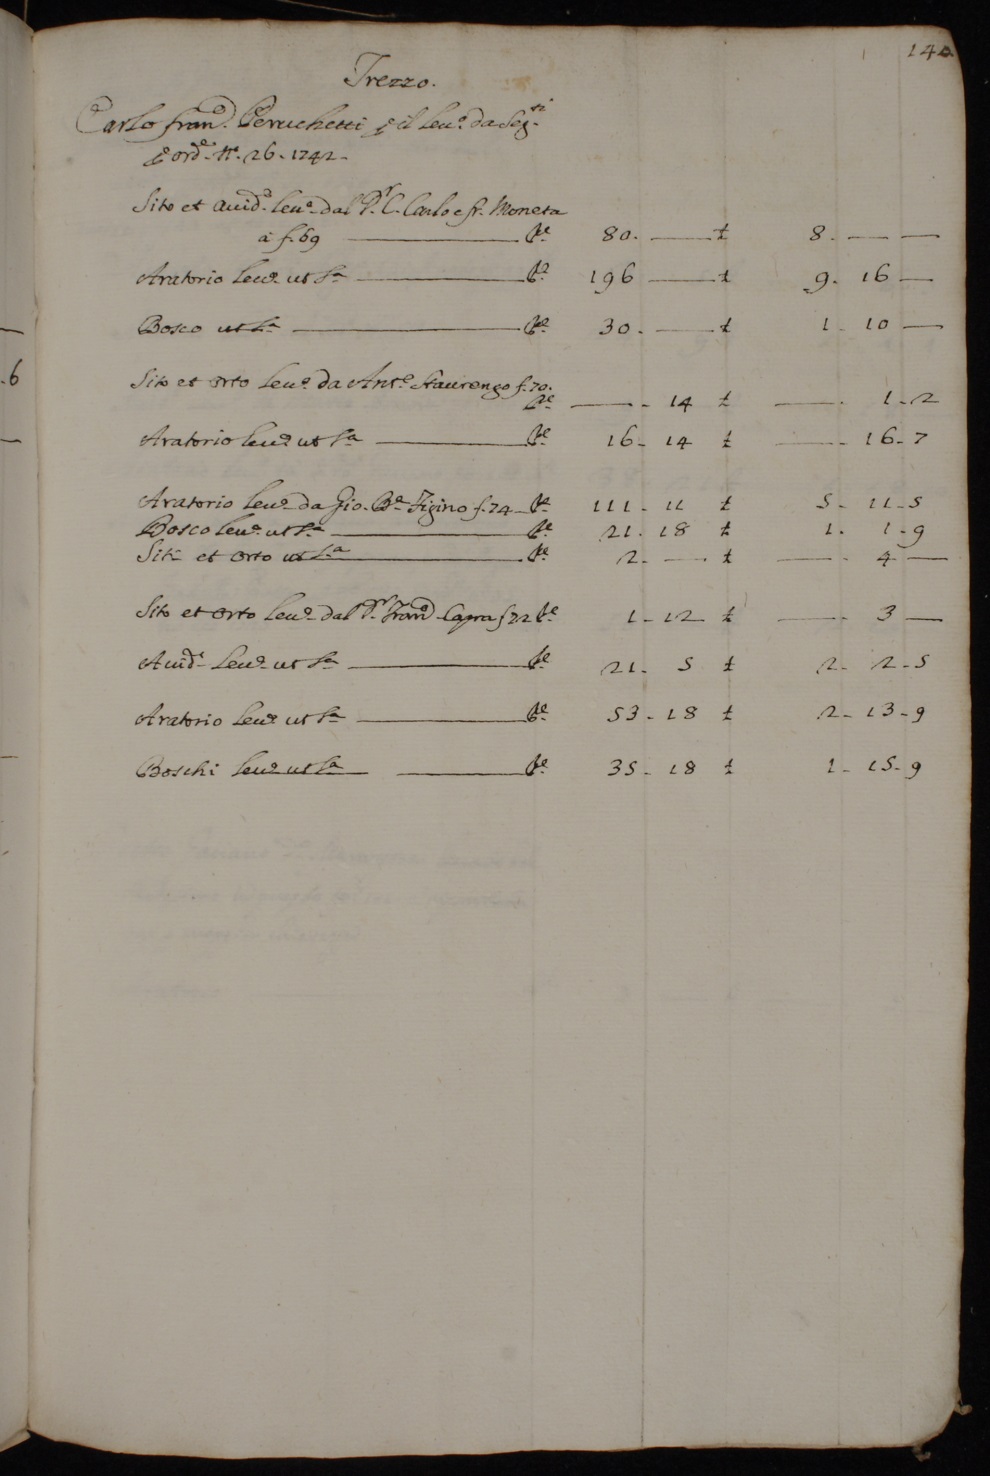 140
Trezzo.
Carlo Fran.co Peruchetti p il leu.o da Seg.ti
p ord.e 26. 1742.
Sito et auid.o leu.o dal S.r C. Carlo e fr. Moneta
à f. 69 — P.e 80. — £ 8. — —
Aratorio leu.o ut s.a — P.e 196 — £ 9. 16 —
Bosco ut s.a — P.e 30. — £ 1. 10 —
Sito et Orto leu.o da Ant.o Staurengo f. 70.
P.e — . 14 £ — . 1. 2
Aratorio leu.o ut s.a — P.e 16. 14 £ — 16. 7
Aratorio leu.o da Gio. B.a Figino f. 74 P.e 111. 11 £ 5. 11. 5
Bosco leu.o ut s.a — P.e 21. 18 £ 1. 1. 9
Siti et Orto ut s.a — P.e 2. — £ — 4 —
Sito et Orto leu.o dal S.r Fran.co Capra f 72 P.e 1. 12 £ — . 3 —
Auid.o leu.o ut s.a — P.e 21. 5 £ 2. 2. 5
Aratorio leu.o ut s.a — P.e 53. 18 £ 2. 13. 9
Boschi leu.o ut s.a — P.e 35. 18 £ 1. 15. 9
6